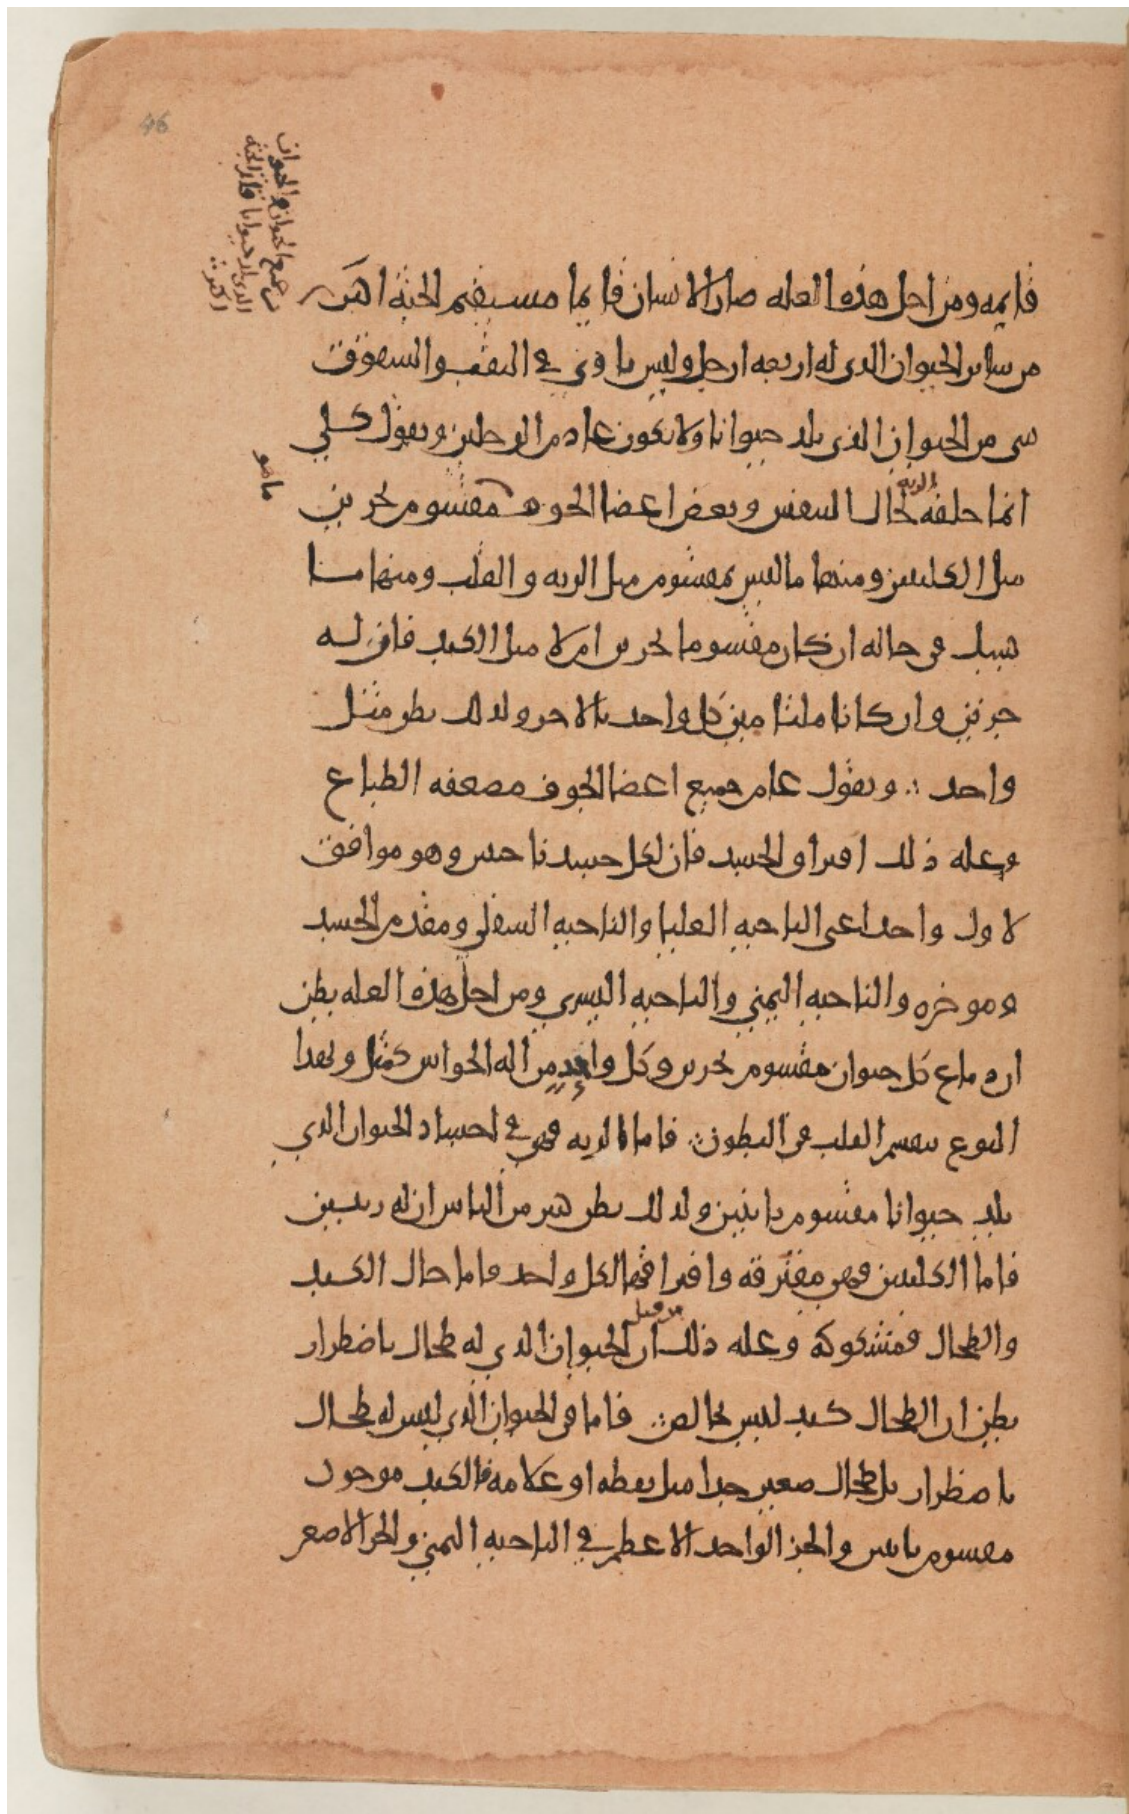 46
من جميع الحيوان والحيوان
الذي يلد حيوانا فان الجثة
اكثر
قايمه ومن اجل هذه العله صار الانسان قايما مستقيم الجثه اكثر
من ساير الحيوان الذي له اربعه ارجل وليس ياوي في الثقب والشقوق
شي من الحيوان الذي يلد حيوانا ولا يكون عادم الرجلين ونقول كلي
ما هو
الريه
انما خلقه لحال التنفس وبعض اعضا الجوف مقسوم بجزين
مثل الكليتين ومنها ما ليس بمقسوم مثل الريه والقلب ومنها ما
في حاله ان كان مقسوما بجزين ام لا مثل الكبد فان له
جزين وان كانا ملتامين كل واحد بالاخر ولذلك يظن مثل
واحد ∴ ونقول عامه جميع اعضا الجوف مضعفه الطباع
وعله ذلك افتراق الجسد فان لكل جسد ناحيتين وهو موافق
لاول واحد اعني الناحيه العليا والناحيه السفلي ومقدم الجسد
وموخره والناحيه اليمني والناحيه اليسري ومن اجل هذه العله يظن
ان دماغ كل حيوان مقسوم بجزين وكل واحد من اله الحواس كمثل وبهذا
النوع ينقسم القلب في البطون ∴ فاما الريه فهي في اجساد الحيوان الذي
يلد حيوانا مقسوم باثنين ولذلك يظن كثير من الناس ان له ريتين
فاما الكليتين فهي مفترقه وافتراقها لكل واحد فاما حال الكبد
من قبل
والطحال فمشكوكة وعله ذلك ان الحيوان الذي له طحال باضطرار
يظن ان الطحال كبد ليس بخالص ∴ فاما في الحيوان الذي ليس له طحال
باضطرار بل طحال صغير جدا مثل نقطه او علامه فالكبد موجود
مقسوم باثنين والجز الواحد الاعظم في الناحيه اليمني والجز الاصغر